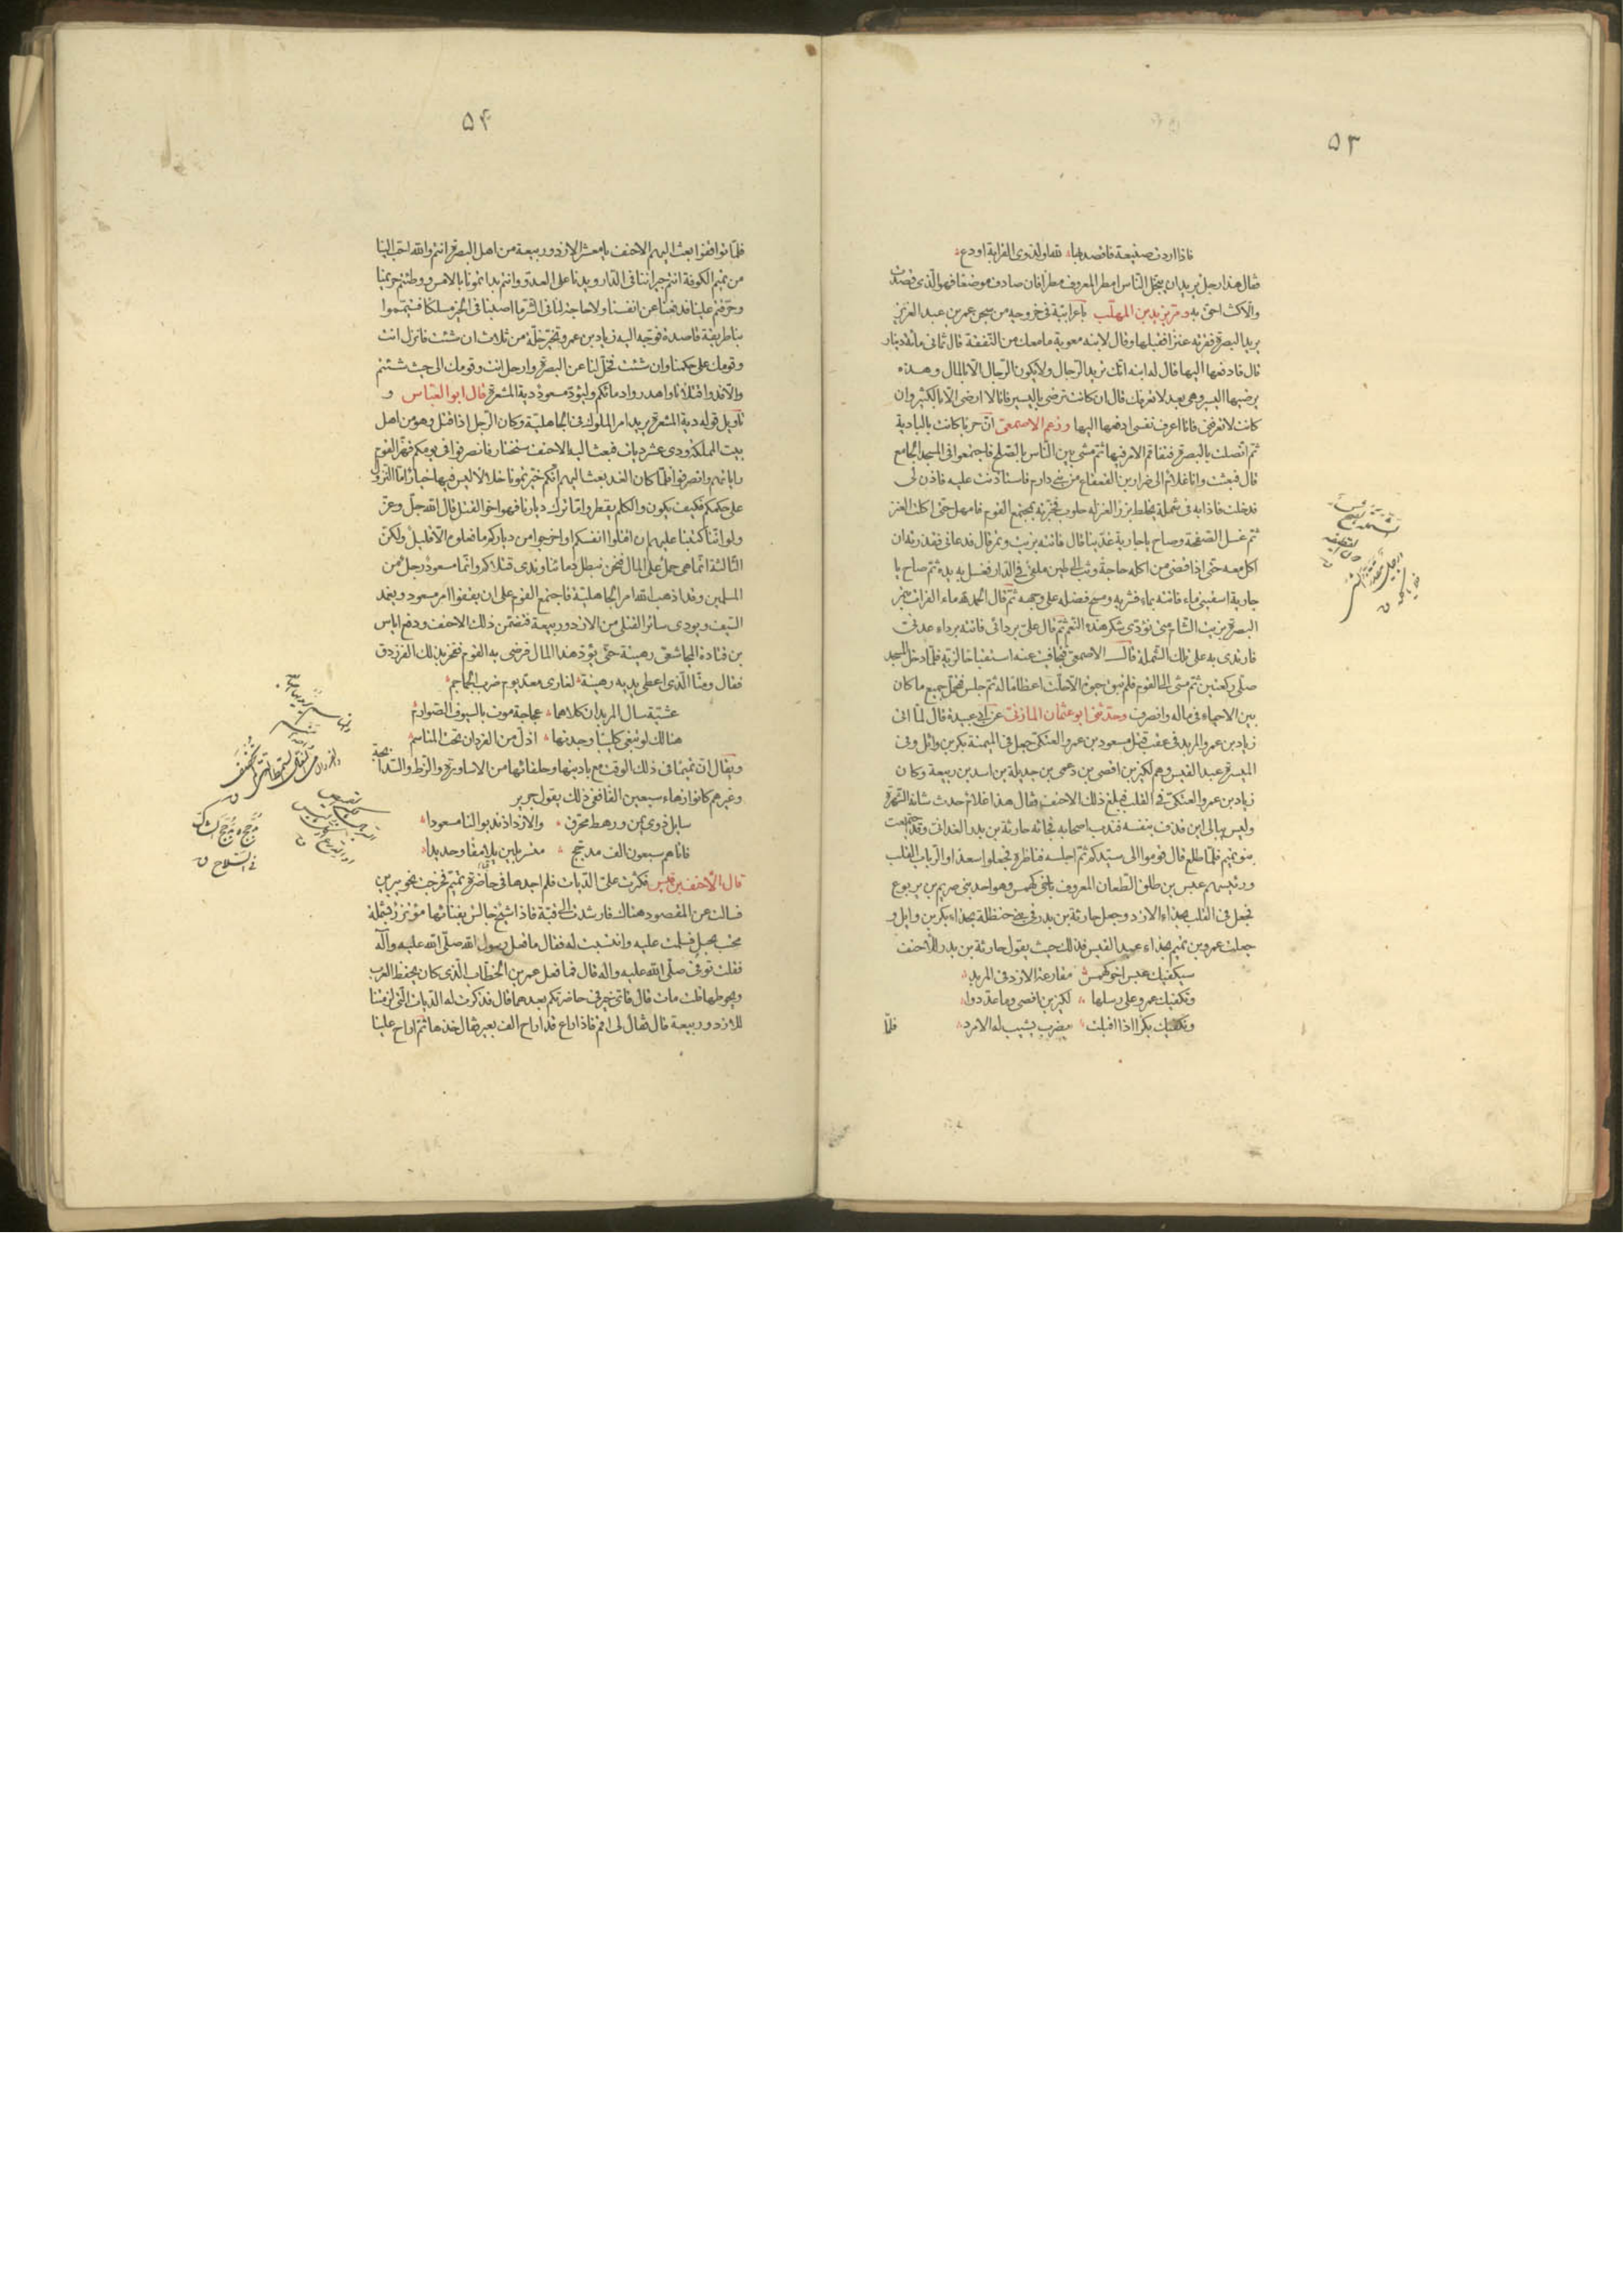 ۵۳
فاذا اردت صنيعة فاقصد بها لله او لذوى القرابة او دع
فقال هذا رجل يريد ان يبخل الناس امطر المعروف مطرا فان صادف موضعا فهو الذى قصدت
والا كنت احق به ومر يزيد بن المهلب باعرابية فى خروجه من سجن عمر بن عبد العزيز
يريد البصرة فقرته عنزا فقبلها وقال لابنه معوية ما معك من النفقة قال ثمانى مائة دينار
قال فادفعها اليها قال له ابنه انك تريد الرجال ولا يكون الرجال الا بالمال وهذه
يرضيها اليسير وهى بعد لا تعرفك قال ان كانت ترضى باليسير فانا لا ارضى الا بالكثير وان
كانت لا تعرفنى فانا اعرف نفسى ادفعها اليها وزعم الاصمعى ان حربا كانت بالبادية
ثم اتصلت بالبصرة فتفاقم الامر فيها ثم مشى بين الناس بالصلح فاجتمعوا فى المسجد الجامع
قال فبعثت وانا غلام الى ضرار بن القعقاع من بنى دارم فاستاذنت عليه فاذن لى
فدخلت فاذا به فى شملة يخلط بزرا لعنز له حلوب فخبرته بمجتمع القوم فامهل حتى اكلت العنز
ثم غسل الصحفة وصاح يا جارية غدينا قال فاتته بزيت وتمر قال فدعانى فقذرته ان
اكل معه حتى اذا قضى من اكله حاجة وثب الى طين ملقى فى الدار فغسل به يده ثم صاح يا
جارية اسقينى ماء فاتته بماء فشربه ومسح فضله على وجهه ثم قال الحمد لله ماء الفرات بتمر
البصرة بزيت الشام متى نؤدى شكر هذه النعم ثم قال على بردائى فاتته برداء عدنى
فارتدى به على تلك الشملة قال الاصمعى فتجافيت عنه استقباحا لزيه فلما دخل المسجد
صلى ركعتين ثم مشى الى القوم فلم تبق حبوة الا حلت اعظاما له ثم جلس فتحمل جميع ما كان
بين الاحياء فى ماله وانصرف وحدثنى ابو عثمان المازنى عن ابى عبيدة قال لما اتى
زياد بن عمرو المربد فى عقب قتل مسعود بن عمرو العتكى جعل فى الميمنة بكر بن وائل وفى
الميسرة عبد القيس وهم لكيز بن افصى بن دعمى بن جديلة بن اسد بن ربيعة وكان
زياد بن عمرو العتكى فى القلب فبلغ ذلك الاحنف فقال هذا غلام حدث شانه الشهرة
وليس يبالى اين قذف بنفسه فندب اصحابه فجائه حارثة بن بدر الغدانى وقد اجتمعت
بنو تميم فلما طلع قال قوموا الى سيدكم ثم اجلسه فناظره فجعلوا سعدا والرباب القلب
ورئيسهم عبس بن طلق الطعان المعروف باخى كهمس وهو احد بنى صريم بن يربوع
فجعل فى القلب بحذاء الازد وجعل حارثة بن بدر فى بنى حنظلة بحذاء بكر بن وايل و
جعلت عمرو بن تميم بحذاء عبد القيس فذلك حيث يقول حارثة بن بدر للاحنف
سيكفيك عبس اخو كهمس مقارعة الازد فى المربد
وتكفيك عمرو على رسلها لكيز بن افصى وما عددوا
وتكفيك بكرا اذا اقبلت بضرب يشيب له الامرد
فلما
۵۴
فلما تواقفوا بعث اليهم الاحنف يا معشر الازد وربيعة من اهل البصرة انتم والله احب الينا
من تميم الكوفة انتم جيراننا فى الدار ويدنا على العدو وانتم بداتمونا بالامس ووطئتم حريمنا
وحرقتم علينا فدفعنا عن انفسنا ولا حاجة لنا فى الشر ما اصبنا فى الخير مسلكا فتيمموا
بنا طريقة قاصدة فوجه اليه زياد بن عمرو تخير خلة من ثلاث ان شئت فانزل انت
وقومك على حكمنا وان شئت فخل لنا عن البصرة وارحل انت وقومك الى حيث شئتم
والا فدوا قتلانا واهدروا دمائكم وليود مسعود دية المشعرة قال ابو العباس و
تاويل قوله دية المشعرة يريد امر الملوك فى الجاهلية وكان الرجل اذا قتل وهو من اهل
بيت المملكة ودى عشر ديات فبعث اليه الاحنف سنختار فانصرفوا فى يومكم فهز القوم
راياتهم وانصرفوا فلما كان الغد بعث اليهم انكم خيرتمونا خلالا ليس فيها خيار اما النزول
على حكمكم فكيف يكون والكلم يقطر واما ترك ديارنا فهو اخو القتل قال الله جل وعز
ولو انا كتبنا عليهم ان اقتلوا انفسكم او اخرجوا من دياركم ما فعلوه الا قليل ولكن
الثالثة انما هى حمل على المال فنحن نبطل دمائنا وندى قتلاكم وانما مسعود رجل من
المسلمين وقد اذهب الله امر الجاهلية فاجتمع القوم على ان يقفوا امر مسعود ويغمد
السيف ويودى سائر القتلى من الازد وربيعة فتضمن ذلك الاحنف ودفع اياس
بن قتادة المجاشعى رهينة حتى يؤد هذا المال فرضى به القوم ففخر بذلك الفرزدق
فقال ومنا الذى اعطى يديه رهينة لغارى معد يوم ضرب الجماجم
عشية سال المربدان كلاهما عجاجة موت بالسيوف الصوارم
هنالك لو تبغى كليبا وجدتها اذل من القردان تحت المناسم
ويقال ان تميما فى ذلك الوقت مع باديتها وحلفائها من الاساورة والزط والسيابجة
وغيرهم كانوا زهاء سبعين الفا ففى ذلك يقول جرير
سايل ذوى يمن ورهط محرق والازد اذ ندبوا لنا مسعودا
فاتاهم سبعون الف مدجج متسربلين يلامقا وحديدا
قال الاحنف بن قيس فكثرت على الديات فلم اجدها فى حاضرة تميم فخرجت نحو يبرين
فسالت عن المقصود هناك فارشدت الى قبة فاذا شيخ جالس بفنائها مؤتزر بشملة
محتب بحبل فسلمت عليه وانتسبت له فقال ما فعل رسول الله صلى الله عليه وآله
فقلت توفى صلى الله عليه وآله قال فما فعل عمر بن الخطاب الذى كان يحفظ العرب
ويحوطها قلت مات قال فاى خير فى حاضرتكم بعدهما قال فذكرت له الديات التى لزمتنا
للازد وربيعة قال فقال لى اقم فاذا راع قد اراح الف بعير فقال خذها ثم اراح علينا